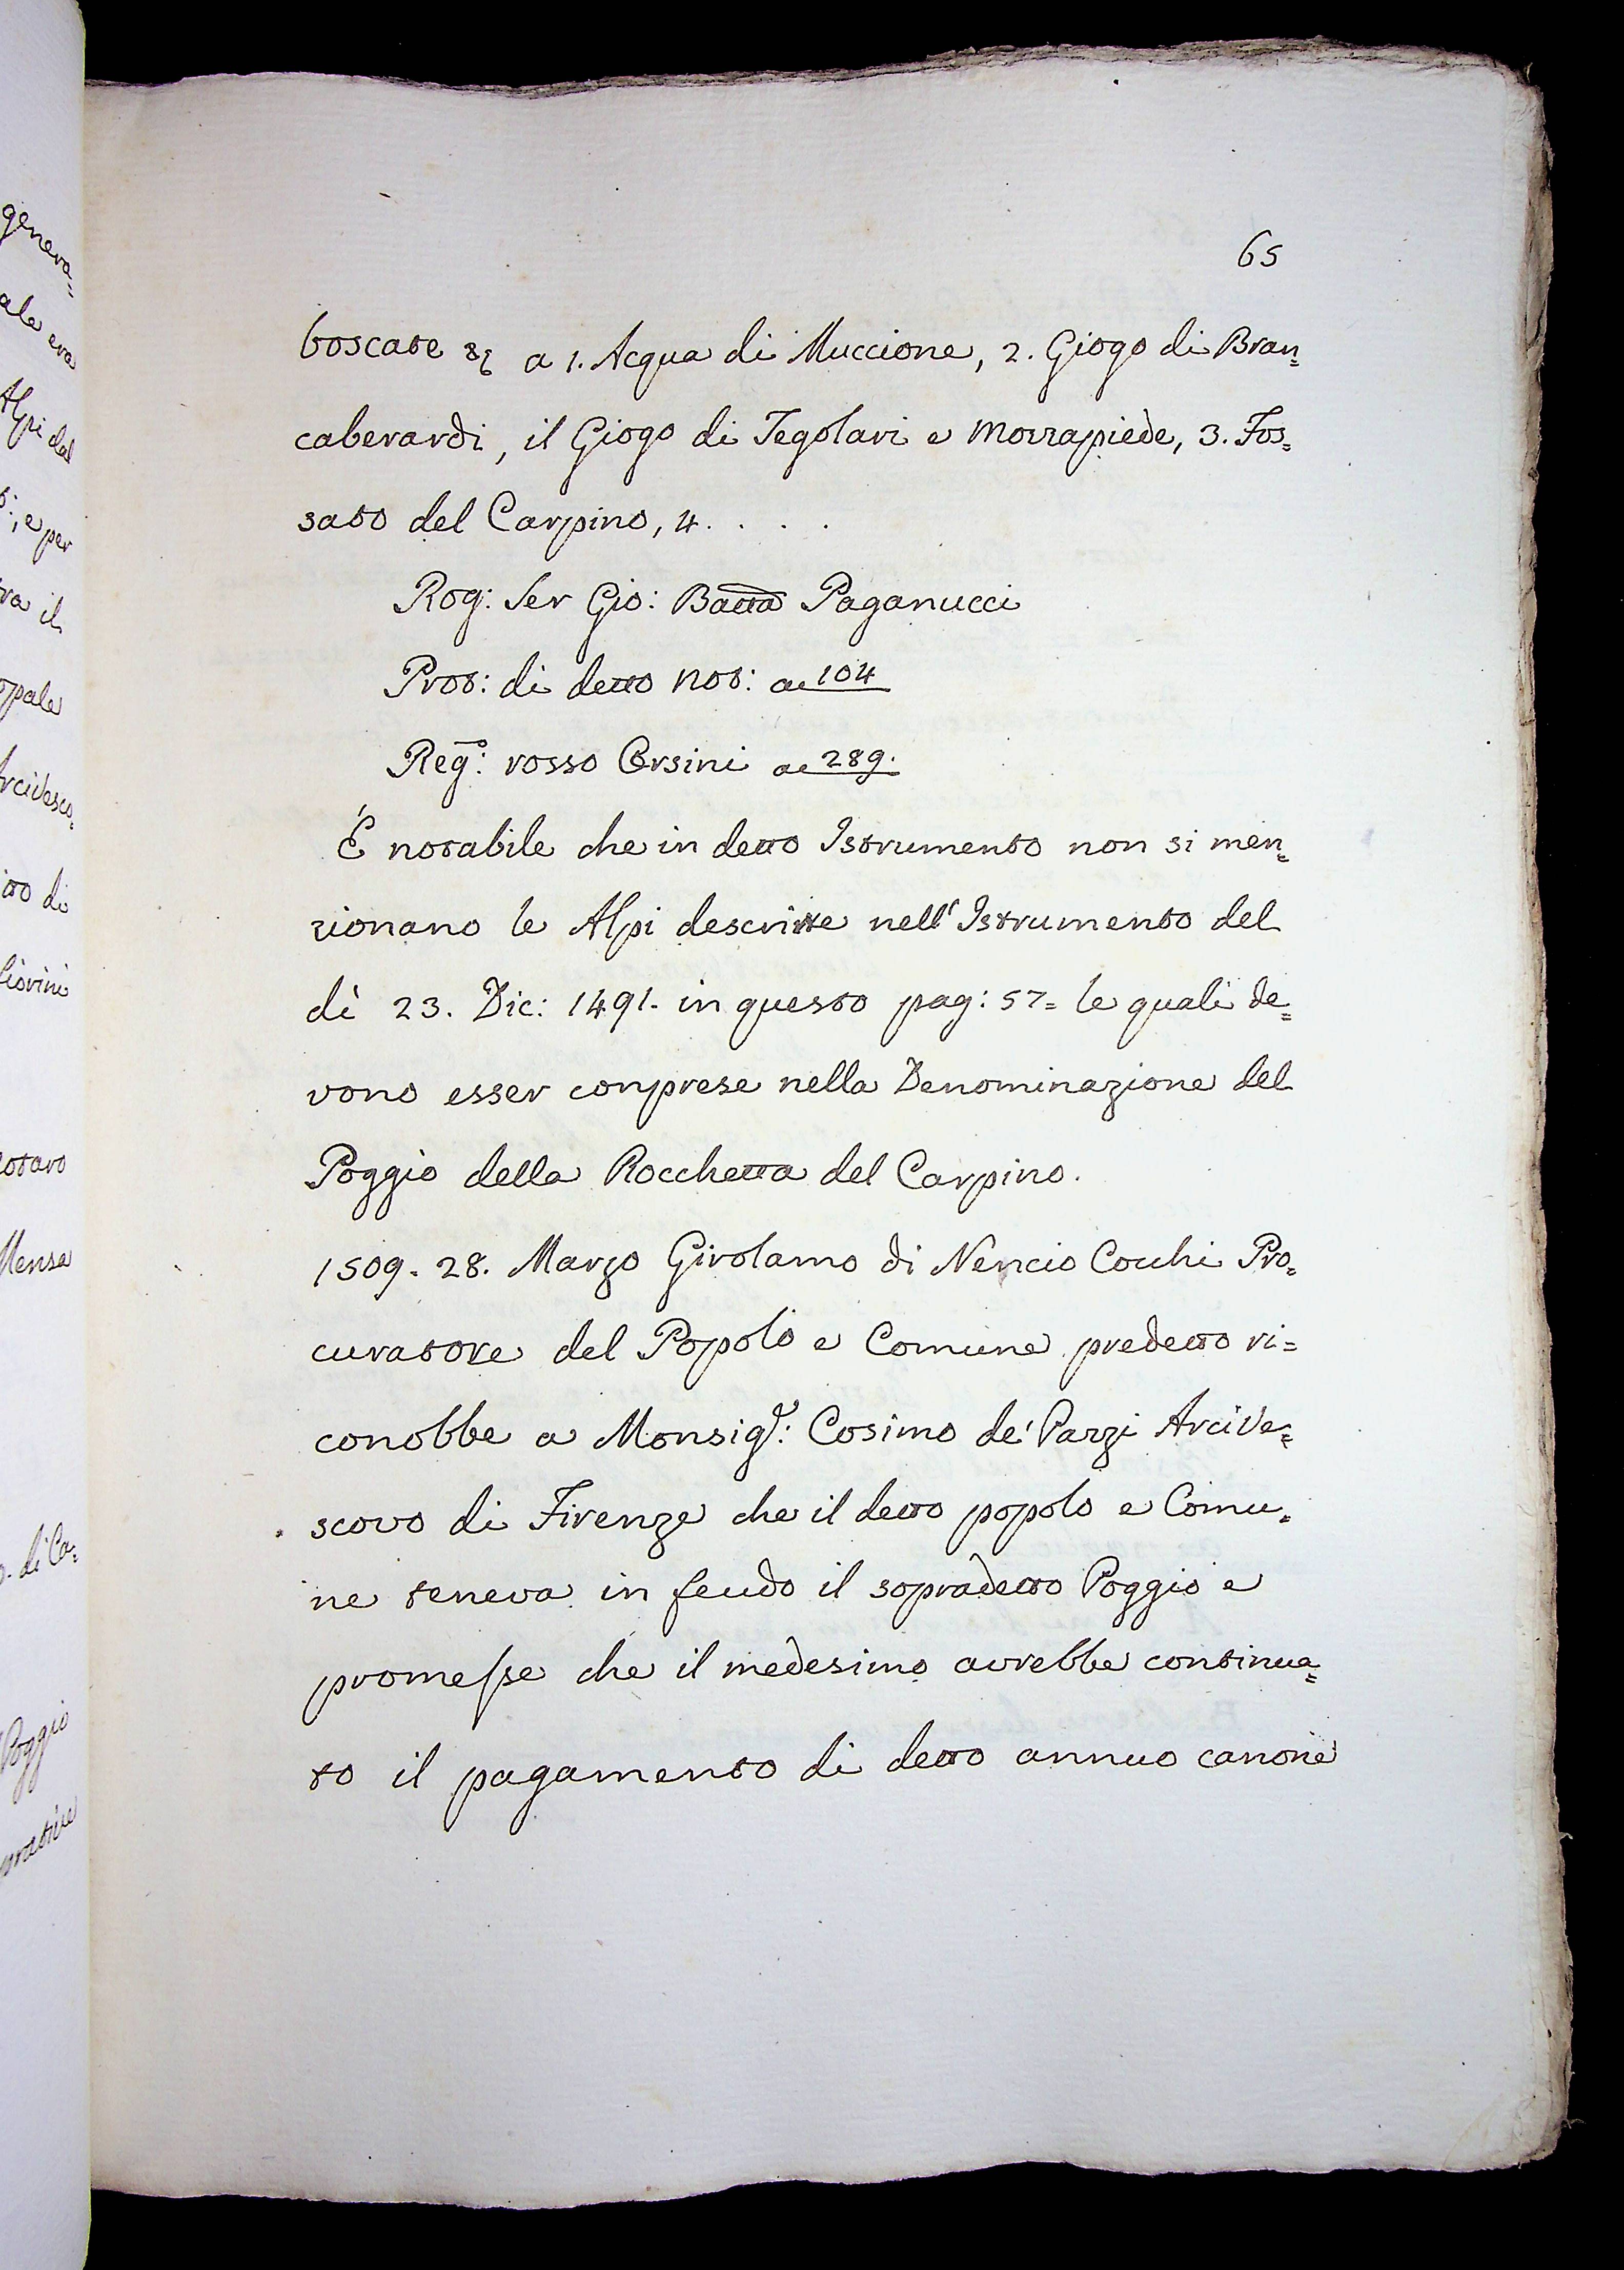 65
boscate &c a 1. Acqua di Muccione, 2. Giogo di Bran=
caberardi, il Giogo di Tegolari e Mozzapiede, 3. Fos=
sato del Carpino, 4. . . . .
Rog: Ser Gio: Batta Paganucci
Prot: di detto Not: ac 104
Reg:o rosso Orsini ac 289.
É notabile che in detto Istrumento non si men=
zionano le Alpi descritte nell' Istrumento del
dì 23. Dic: 1491. in questo pag: 57= le quali de=
vono esser comprese nella Denominazione del
Poggio della Rocchetta del Carpino.
1509. 28. Marzo Girolamo di Nencio Cocchi Pro=
curatore del Popolo e Comune predetto ri=
conobbe a Monsigr: Cosimo de' Pazzi Arcive=
scovo di Firenze che il detto popolo e Comu=
ne teneva in feudo il sopradetto Poggio e
promesse che il medesimo avrebbe continua=
to il pagamento di detto annuo canone
genera=
ale era
Alpi dal
e per
il
Arcivesco=
di
Mensa
di Ca=
Poggio